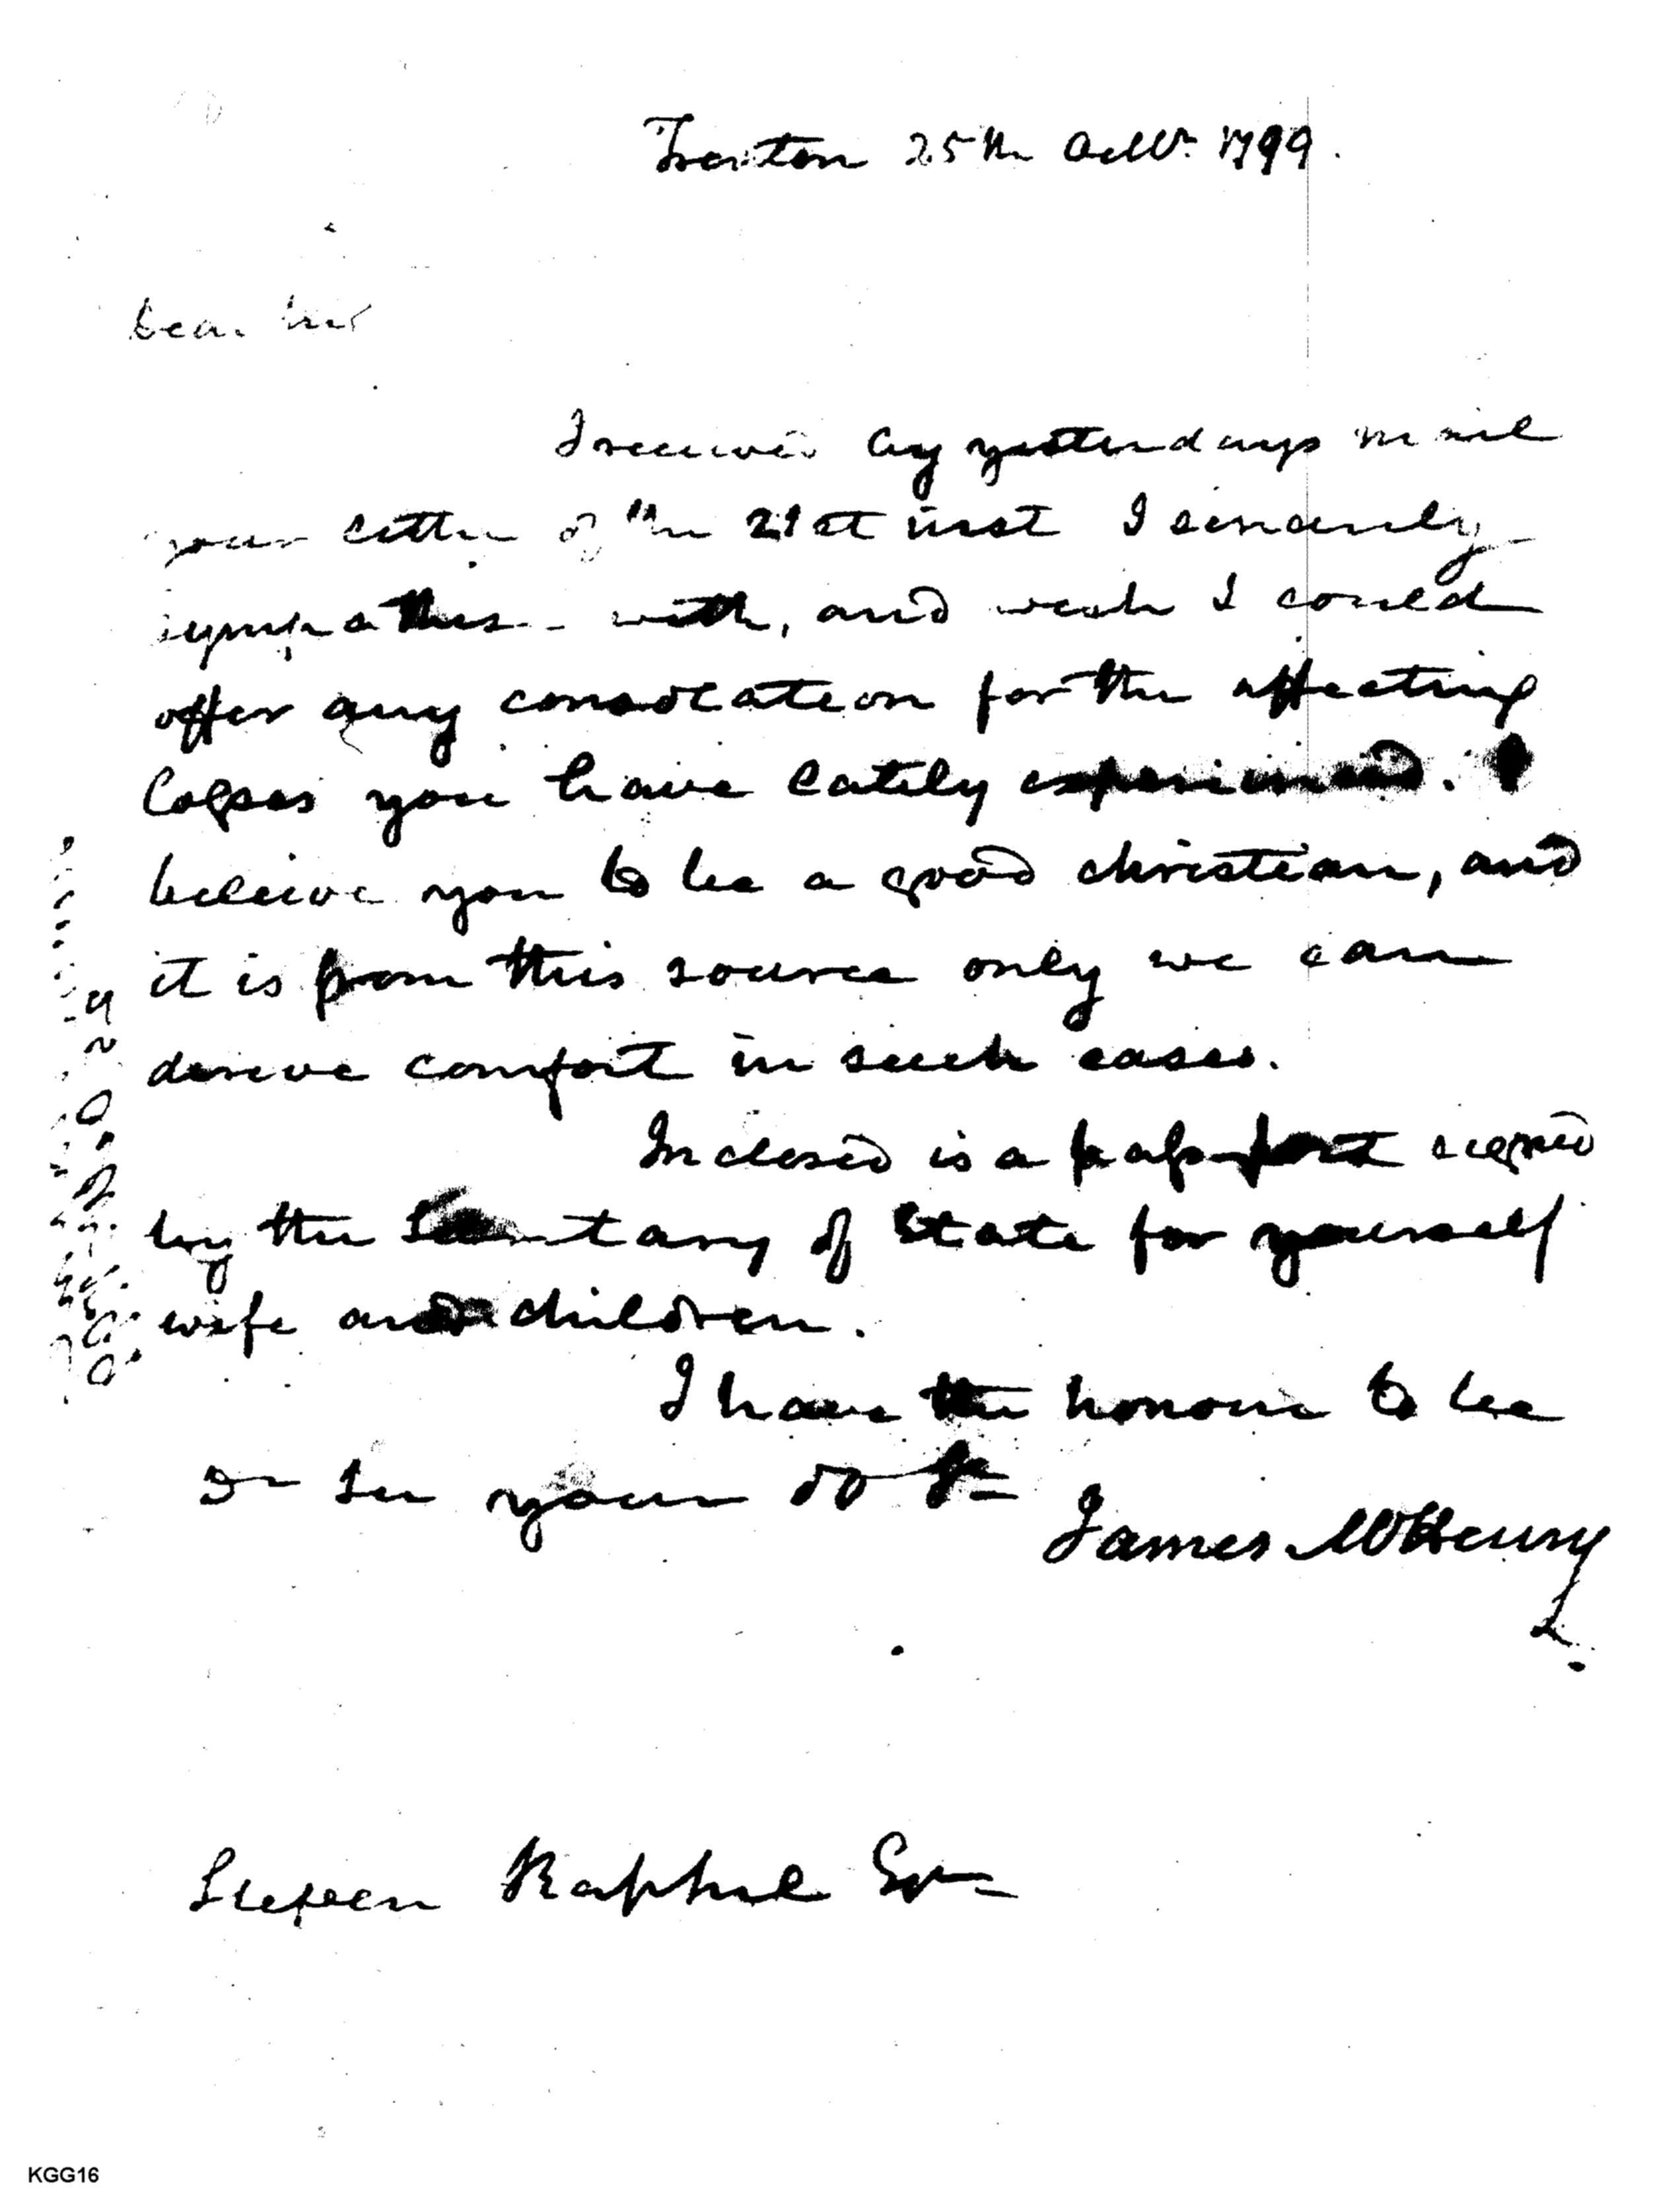 Trenton 25th Octbr. 1799.
Dear Sir
I received by yesterdays mail
your letter of the 21st inst I sincerely
sympathise with, and wish I could
offer any consolation for the affecting
losses you have lately experienced. I
believe you to be a good christian, and
it is from this source only we can
derive comfort in such cases.
Inclosed is a passport signed
by the Secretary of State for yourself
wife and children.
I have the honour to be
Dr Sir your ob St
James McHenry
Stepen Raphel Esqr
KGG16